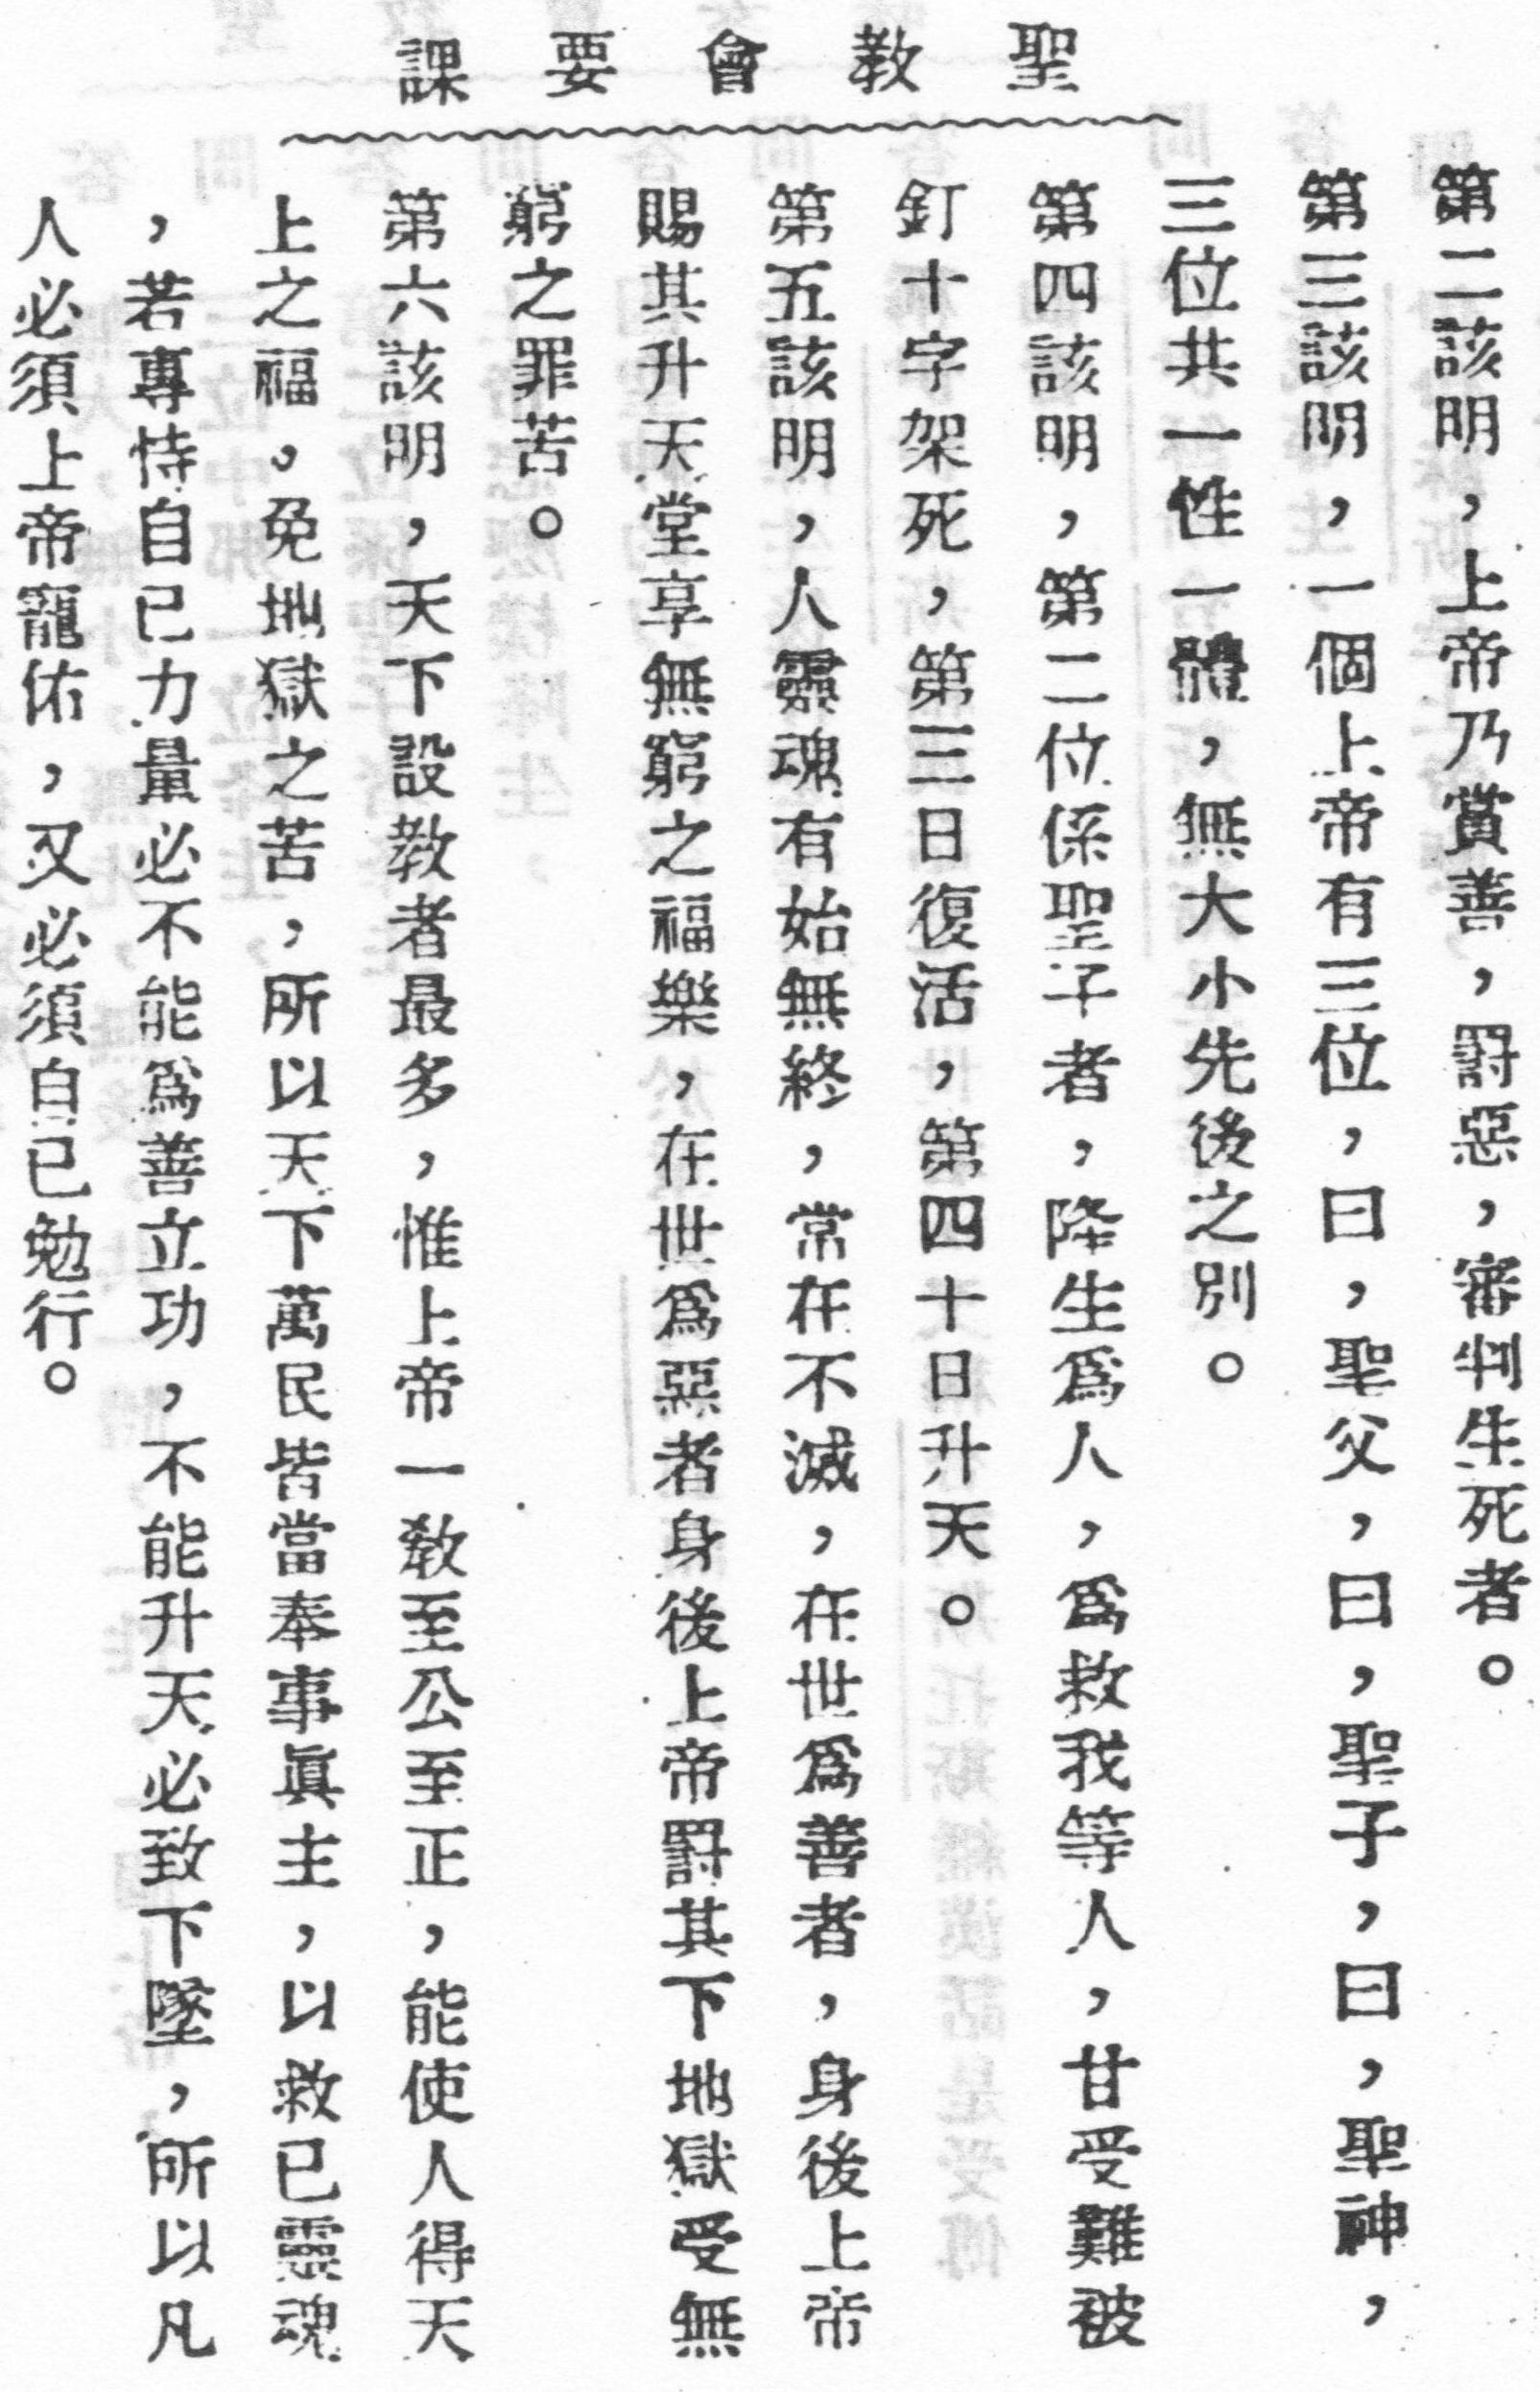 聖教會要課
第二該明，上帝乃賞善，罸惡，審判生死者。
第三該明，一個上帝有三位，曰，聖父，曰，聖子，曰，聖神，
三位共一性一體，無大小先後之別。
第四該明，第二位係聖子者，降生爲人，爲救我等人，甘受難被
釘十字架死，第三日復活，第四十日升天。
第五該明，人靈魂有始無終，常在不滅，在世爲善者，身後上帝
賜其升天堂享無窮之福樂，在世爲惡者身後上帝罸其下地獄受無
窮之罪苦。
第六該明，天下設教者最多，惟上帝一敎至公至正，能使人得天
上之福。免地獄之苦，所以天下萬民皆當奉事眞主，以救已靈魂
，若專恃自已力量必不能爲善立功，不能升天必致下墜，所以凡
人必須上帝寵佑，又必須自已勉行。